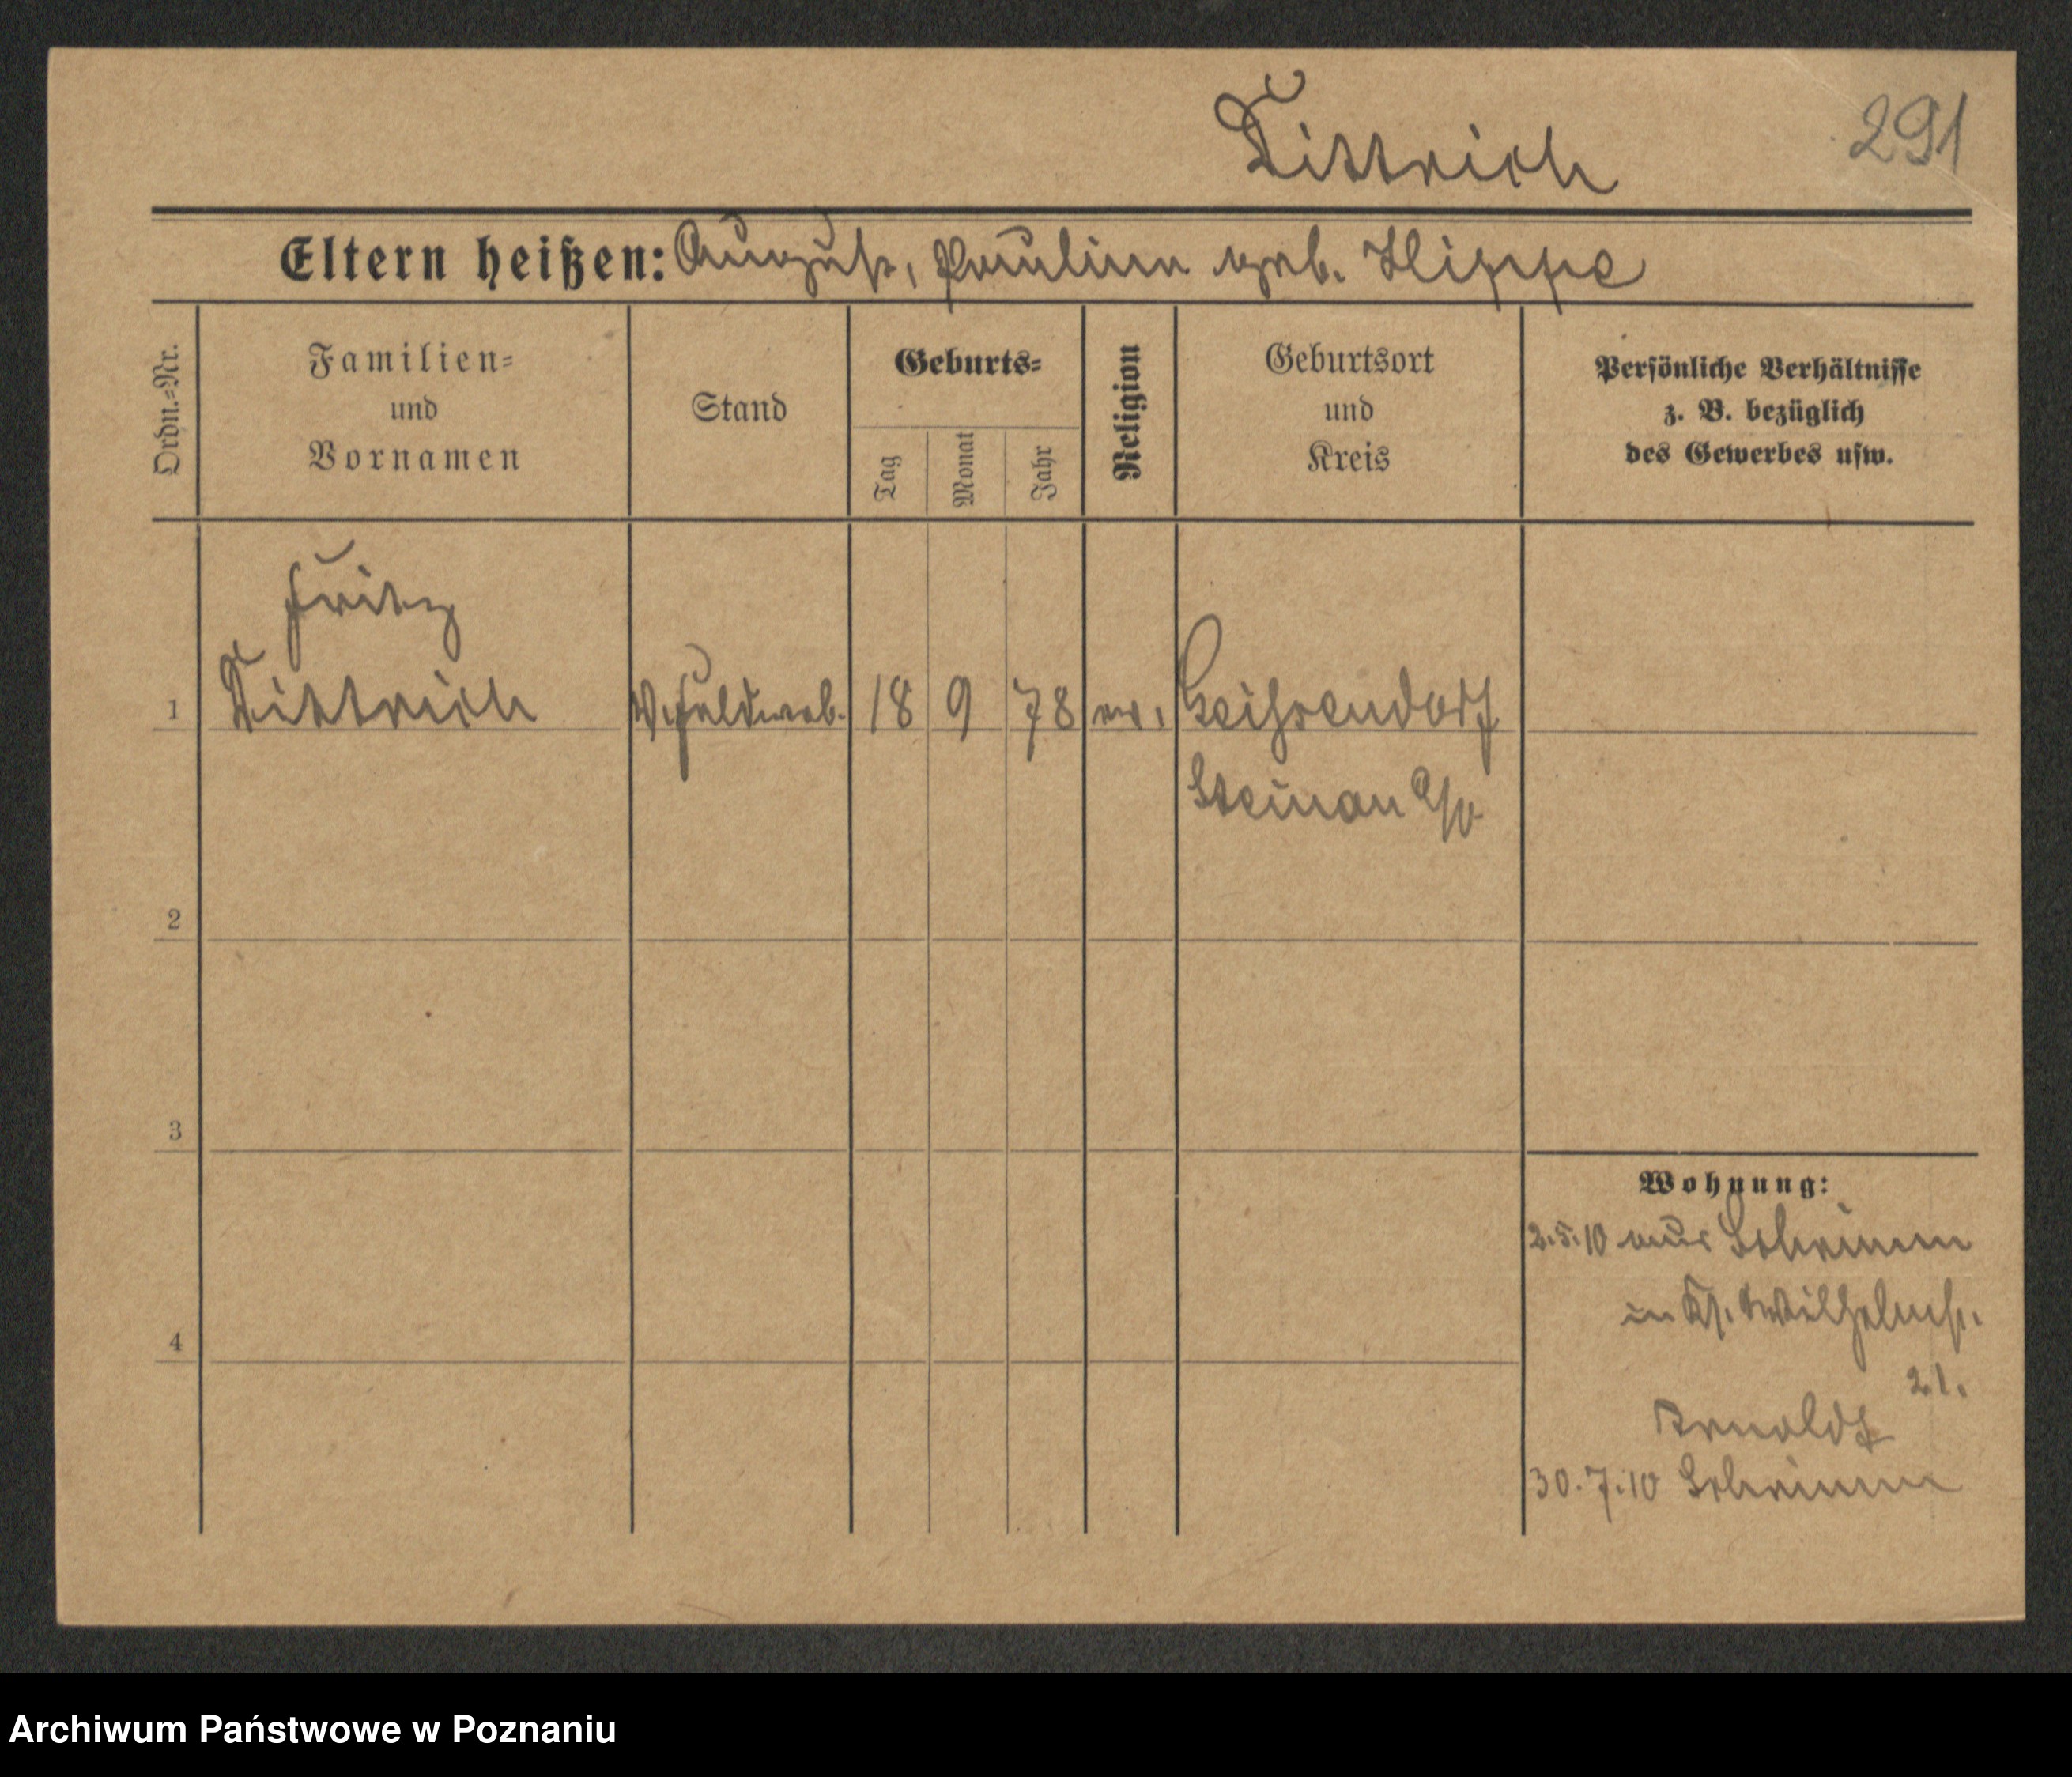 Dittrich 291
Eltern heißen: August, Pauline geb. Hippe
Ordn.-Nr.
Familien-
und
Vornamen
Stand
Geburts-
Tag
Monat
Jahr
Religion
Geburtsort
und
Kreis
Persönliche Verhältnisse
z. B. bezüglich
des Gewerbes usw.
Fritz
1 Dittrich V.feldweb. 18 9 78 ev.
Steinau a/O
2
3
4
Wohnung:
2.5.10 aus Schrimm
in Wilhelmst.
21.
Arnoldt
30.7.10 Schrimm
Archiwum Państwowe w Poznaniu